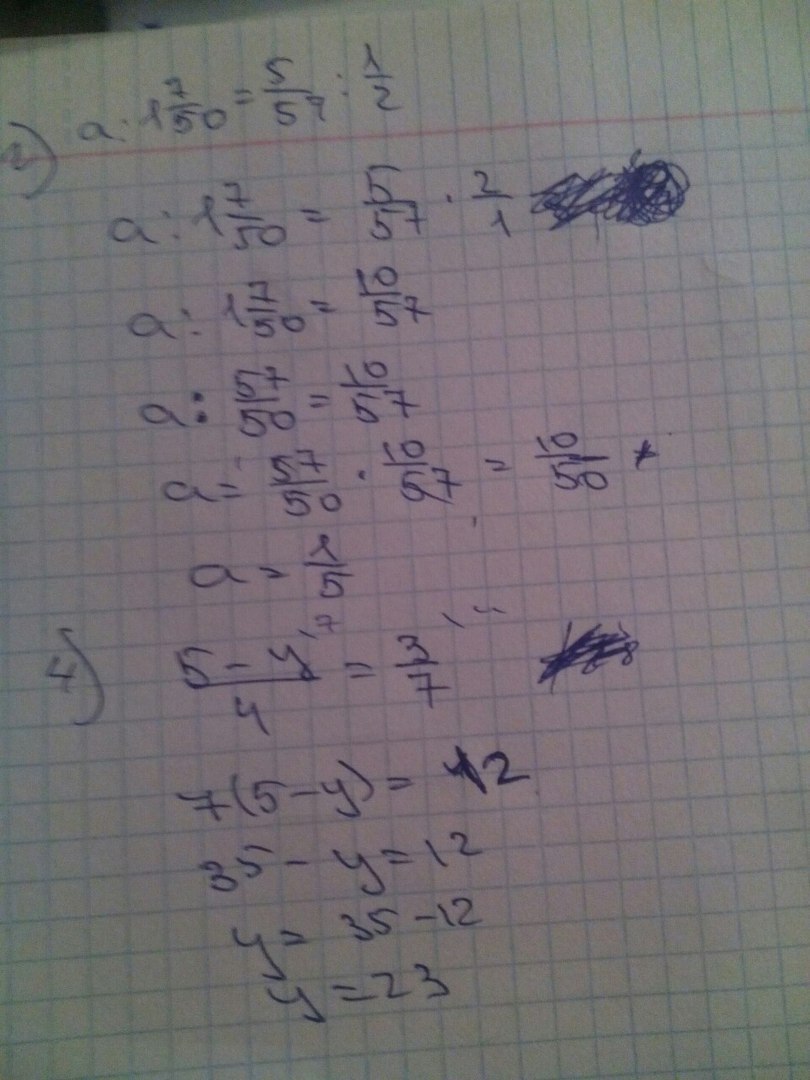 2) a : 1 7/50 = 5/57 : 1/2
a : 1 7/50 = 5/57 · 2/1
a : 1 7/50 = 10/57
a : 57/50 = 10/57
a = 57/50 · 10/57 = 10/50
a = 1/5
4) (5 - y)/4 = 3/7
7(5 - y) = 12
35 - y = 12
y = 35 - 12
y = 23